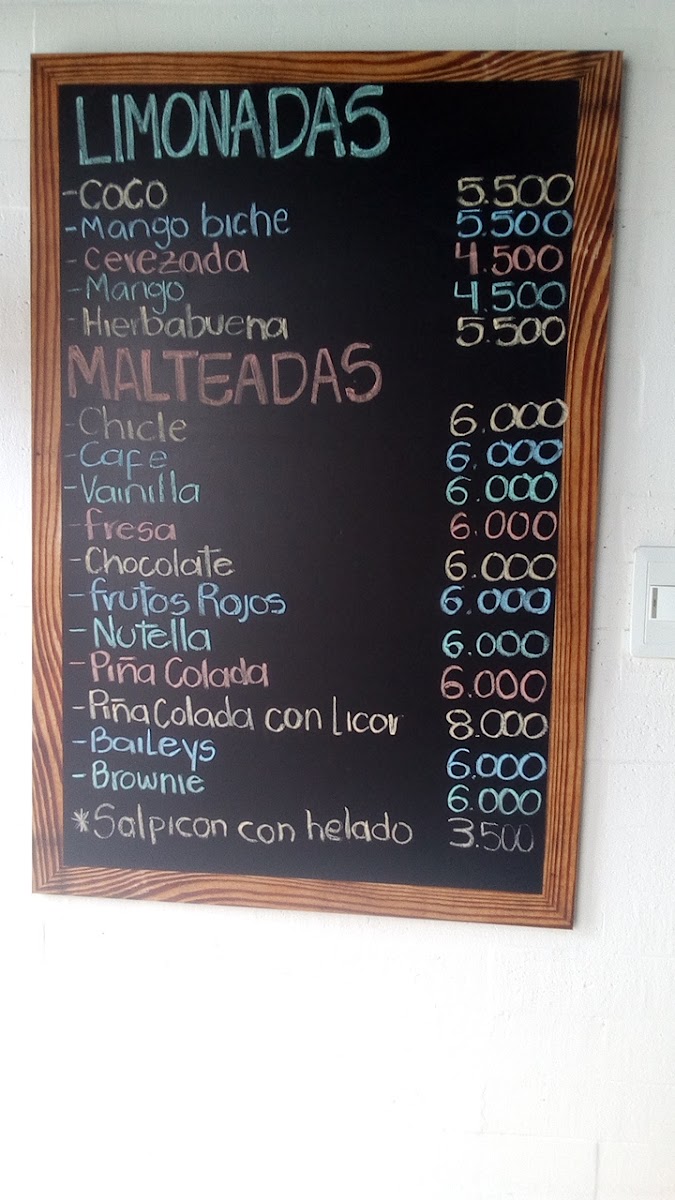 LIMONADAS
-COCO 5.500
-Mango biche 5.500
-Cerezada 4.500
-Mango 4.500
-Hierbabuena 5.500
MALTEADAS
-Chicle 6.000
-Cafe 6.000
-Vainilla 6.000
-Fresa 6.000
-Chocolate 6.000
-Frutos Rojos 6.000
-Nutella 6.000
-Piña Colada 6.000
-Piña Colada con Licor 8.000
-Baileys 6.000
-Brownie 6.000
*Salpicon con helado 3.500